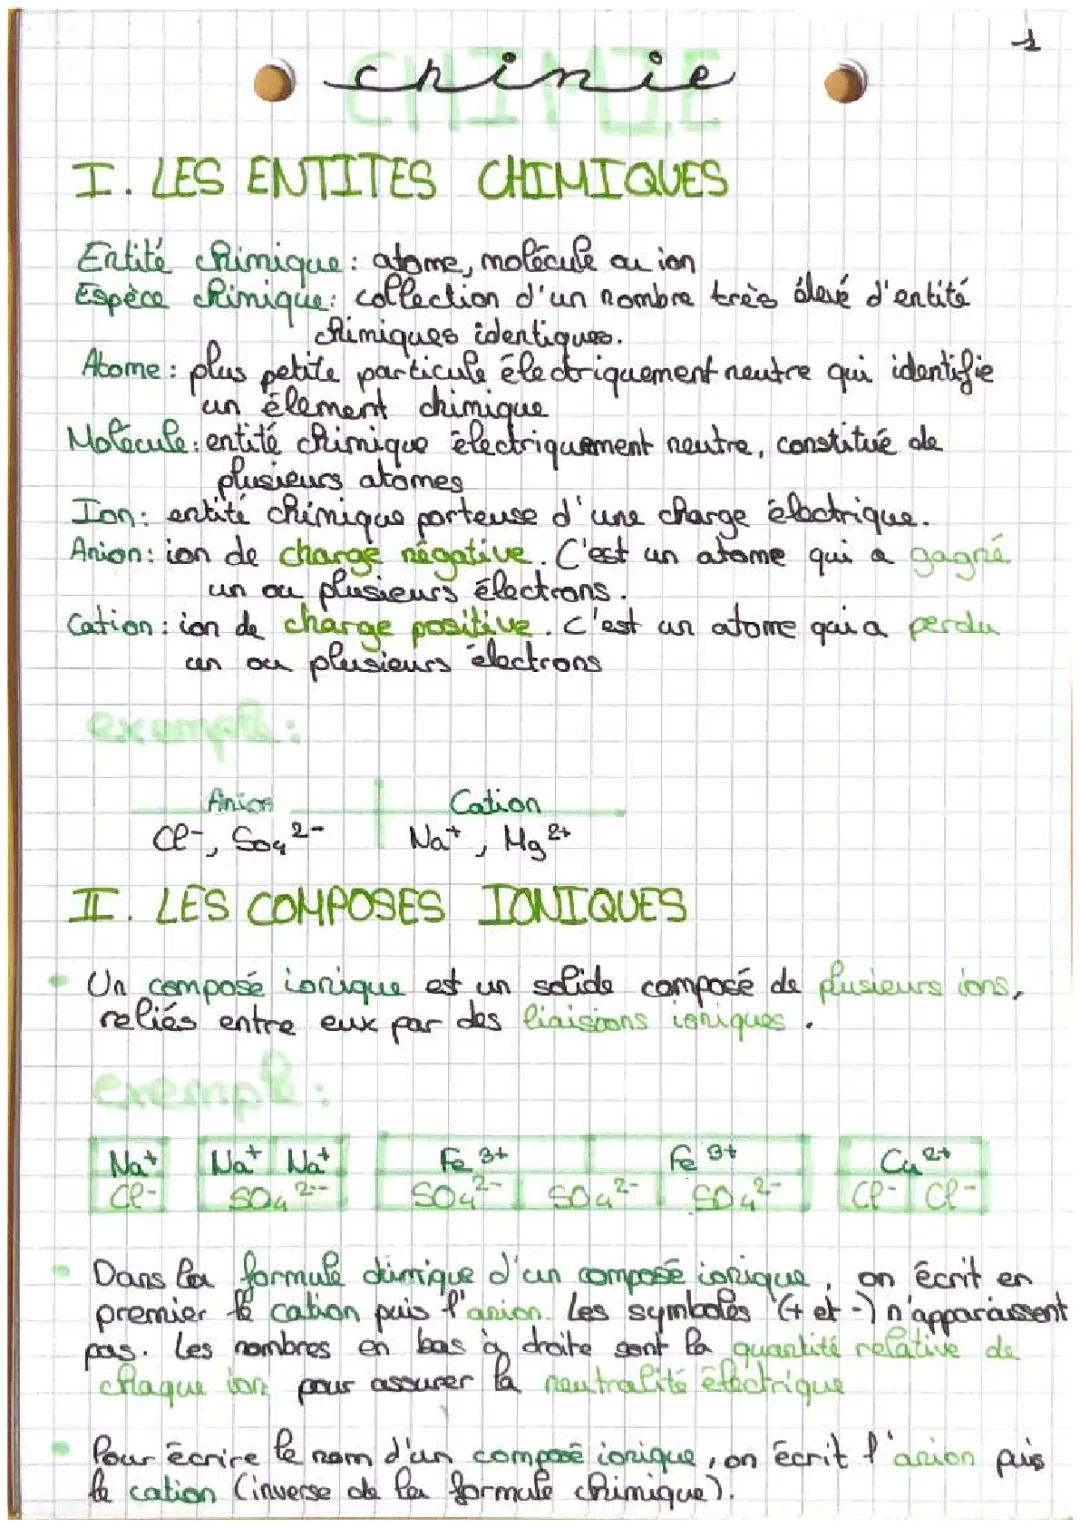 1
chimie
CHIMIE
I. LES ENTITES CHIMIQUES
Entité chimique : atome, molécule ou ion
Espèce chimique : collection d'un nombre très élevé d'entité
chimiques identiques.
Atome : plus petite particule électriquement neutre qui identifie
un élement chimique
Molécule : entité chimique électriquement neutre, constitué de
plusieurs atomes
Ion : entité chimique porteuse d'une charge électrique.
Anion : ion de charge négative. C'est un atome qui a gagné
un ou plusieurs électrons.
Cation : ion de charge positive. C'est un atome qui a perdu
un ou plusieurs électrons
exemple :
Anion Cation
Cl⁻, SO₄²⁻ Na⁺, Mg²⁺
II. LES COMPOSES IONIQUES
Un composé ionique est un solide composé de plusieurs ions,
reliés entre eux par des liaisions ioniques.
exemple :
Na⁺ Na⁺ Na⁺ Fe³⁺ Fe³⁺ Cu²⁺
Cl⁻ SO₄²⁻ SO₄²⁻ SO₄²⁻ SO₄²⁻ Cl⁻ Cl⁻
Dans la formule chimique d'un composé ionique, on écrit en
premier le cation puis l'anion. Les symboles (+ et -) n'apparaissent
pas. Les nombres en bas à droite sont la quantité relative de
chaque ion pour assurer la neutralité électrique
Pour écrire le nom d'un composé ionique, on écrit l'anion puis
le cation (inverse de la formule chimique).